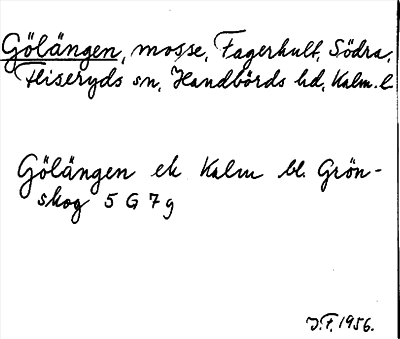 Gölängen, mosse, Fagerhult, Södra,
Fliseryds sn, Handbörds hd, Kalm. l.
Gölängen ek Kalm bl. Grön-
skog 5 G 7 g
J.F. 1956.